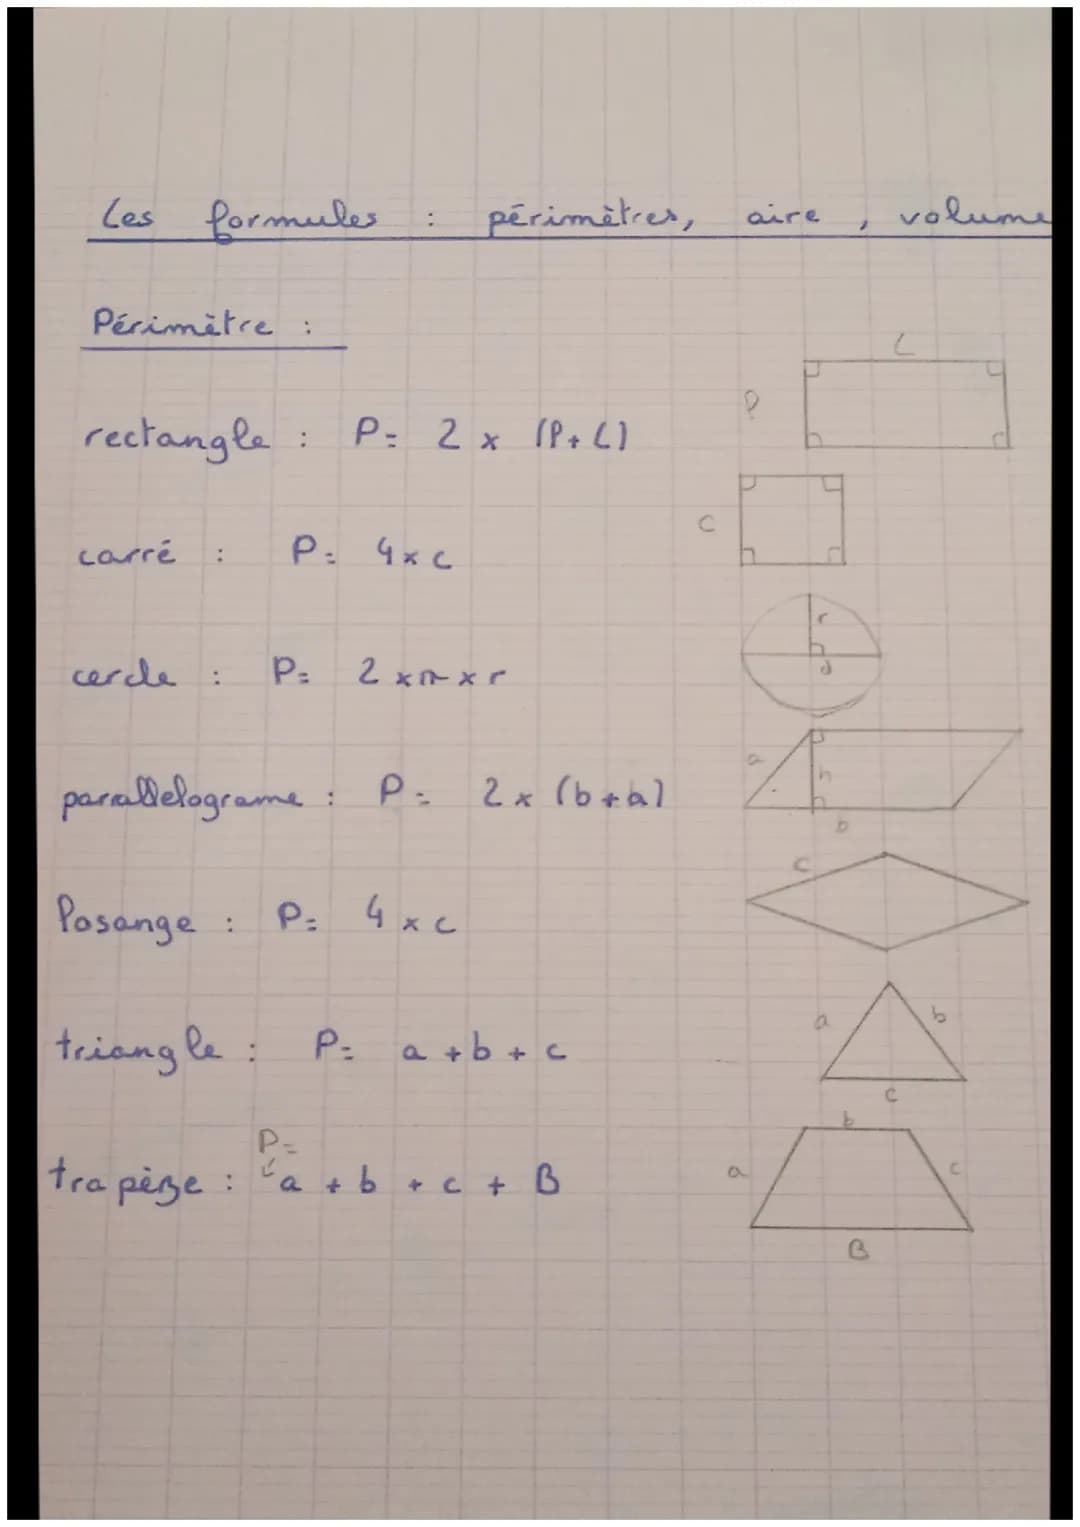 Les formules : périmètres, aire, volume
Périmètre :
L
P
rectangle : P= 2 x (P+L)
c
carré : P= 4 x c
r
d
cercle : P= 2 x π x r
a
h
b
parallelograme : P= 2 x (b+a)
c
losange : P= 4 x c
a
b
c
triangle : P= a + b + c
b
a
c
B
P=
trapèze : a + b + c + B